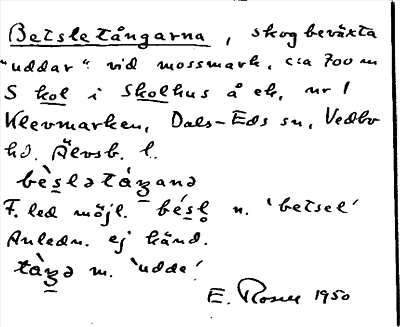 Betsletångarna, skogbeväxta
"uddar" vid mossmark, c:a 700 m
S kol i Skolhus å ek, nr 1
Klevmarken, Dals-Eds sn, Vedbo
hd. Älvsb. l.
bèslətáŋanə
F. led möjl. bésl̥ n. 'betsel'
Anledn. ej känd.
tàŋə m. 'udde'.
E. Rosell 1950